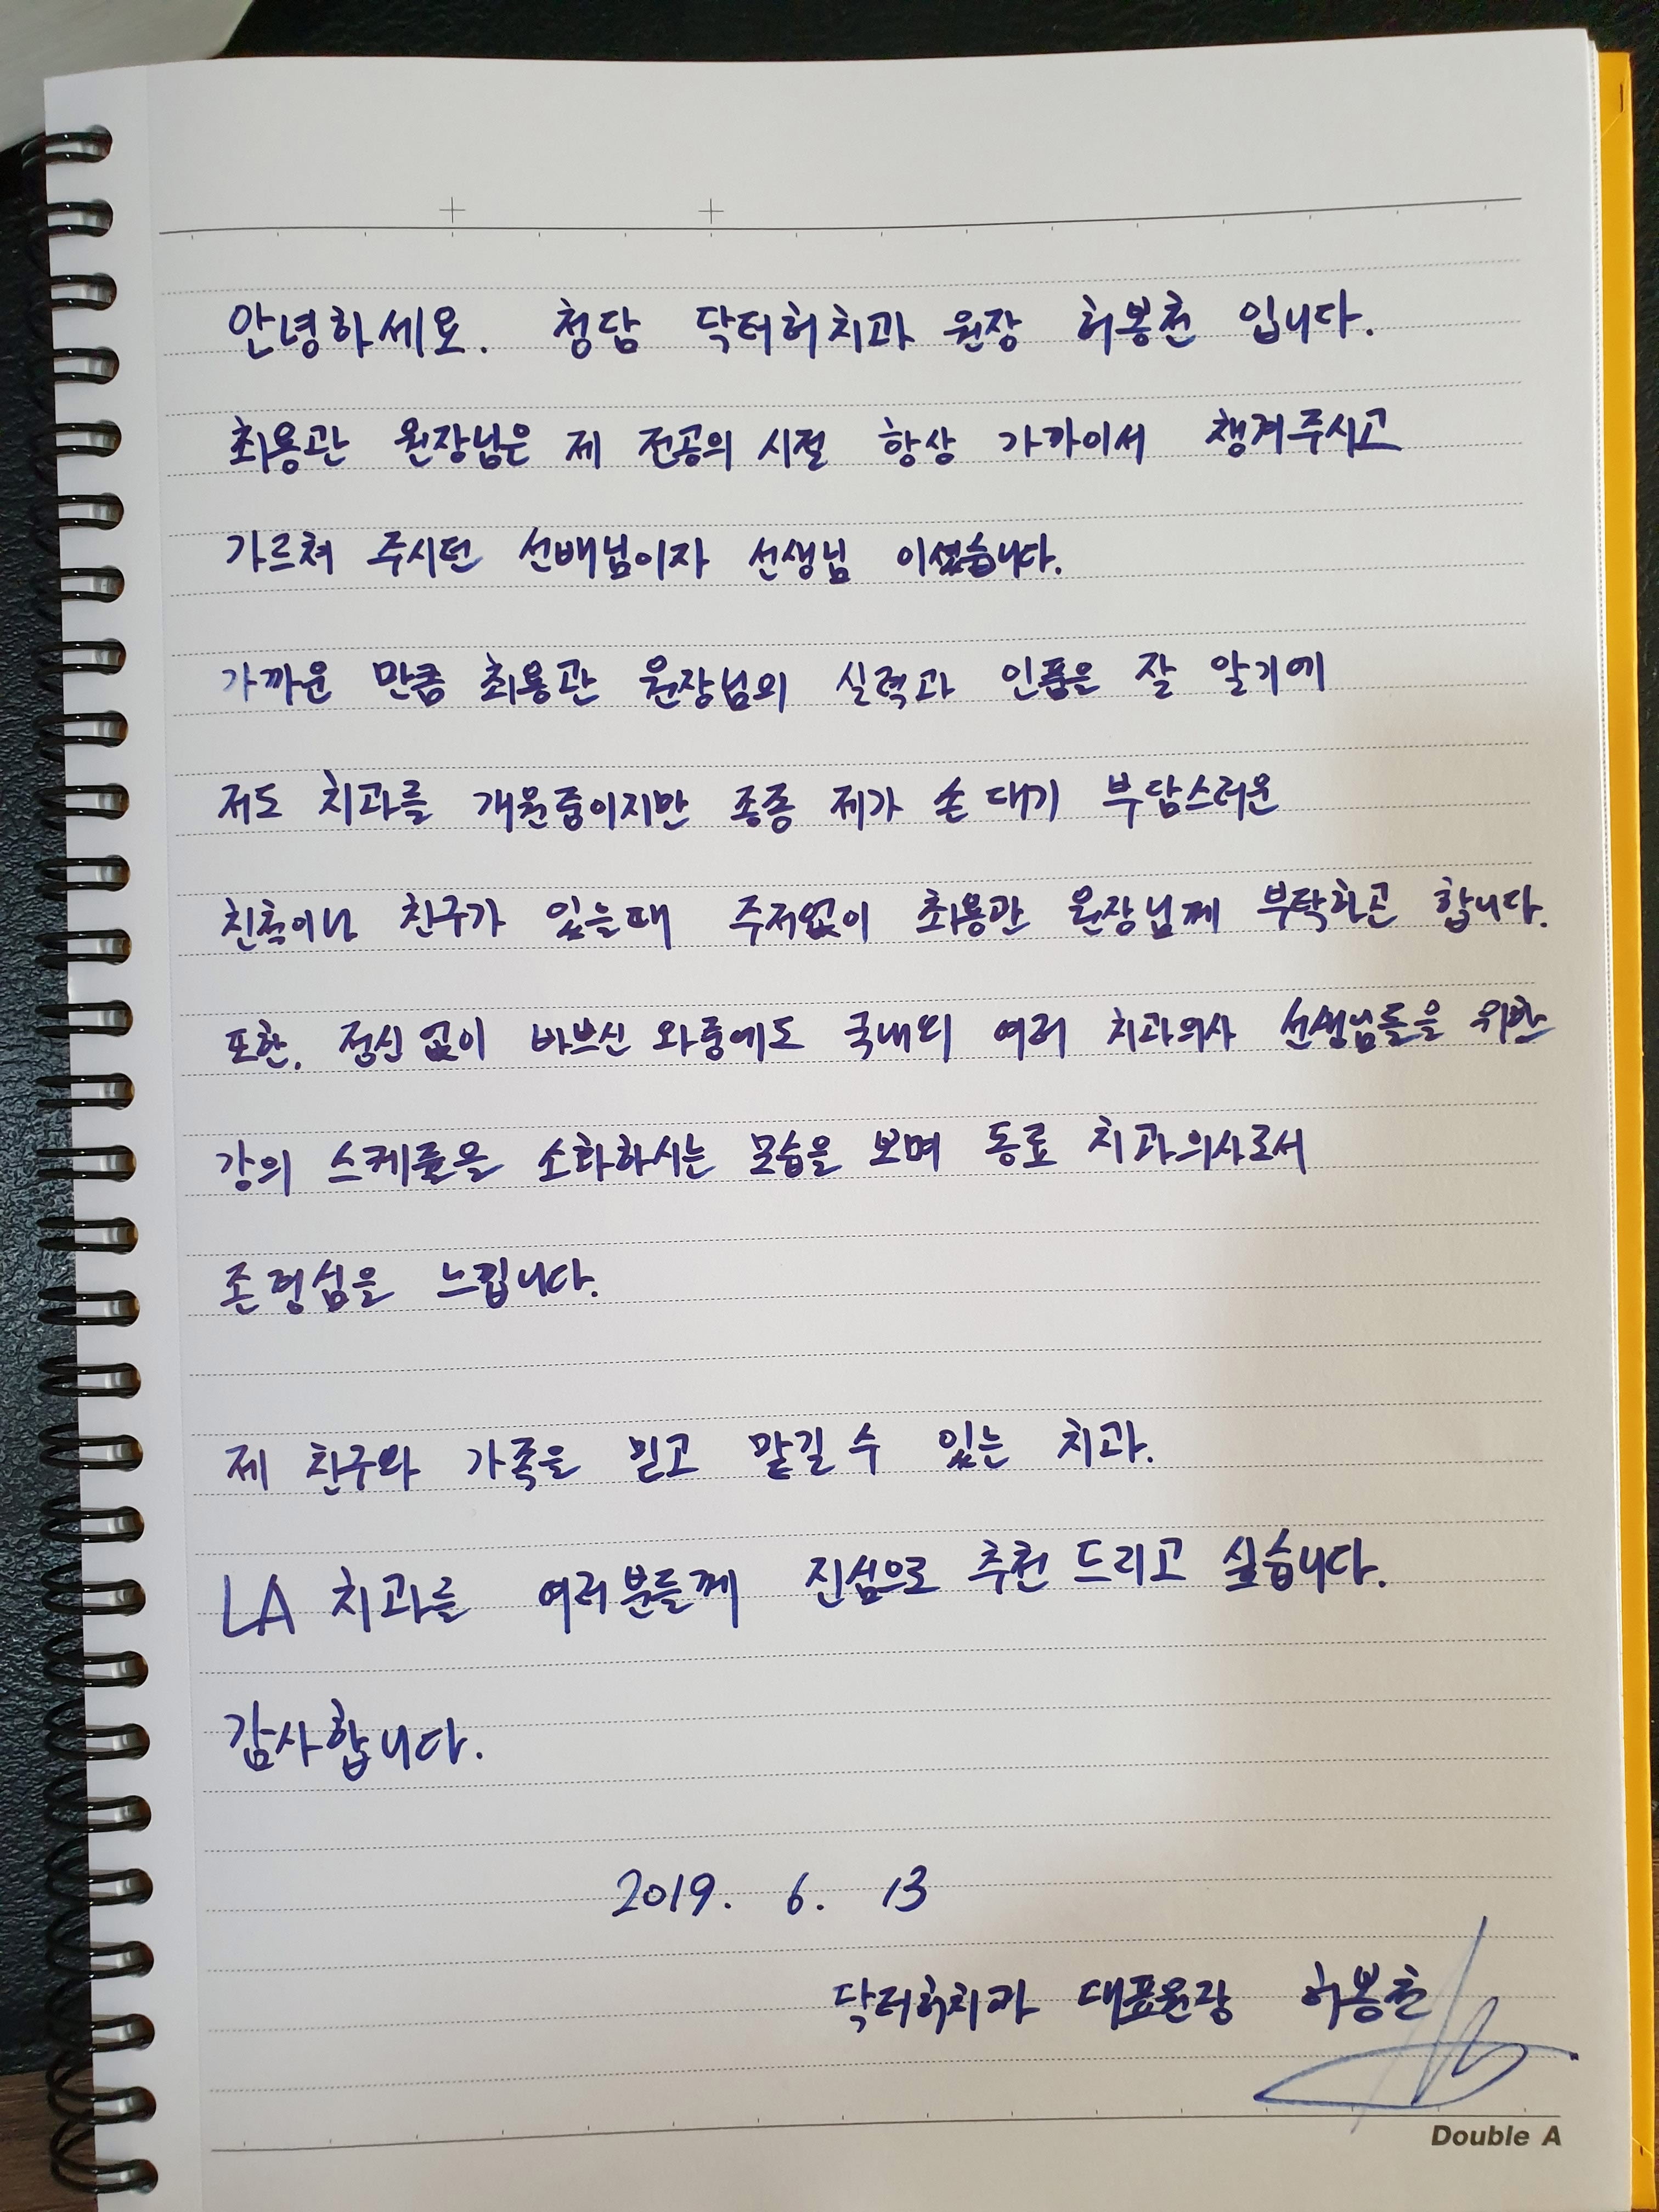 안녕하세요. 청담 닥터허치과 원장 허봉천 입니다.
최용관 원장님은 제 전공의 시절 항상 가까이서 챙겨주시고
가르쳐 주시던 선배님이자 선생님 이셨습니다.
가까운 만큼 최용관 원장님의 실력과 인품을 잘 알기에
저도 치과를 개원중이지만 종종 제가 손 대기 부담스러운
친척이나 친구가 있을때 주저없이 최용관 원장님께 부탁하곤 합니다.
또한, 정신 없이 바쁘신 와중에도 국내외 여러 치과의사 선생님들을 위한
강의 스케쥴을 소화하시는 모습을 보며 동료 치과의사로서
존경심을 느낍니다.
제 친구와 가족을 믿고 맡길 수 있는 치과.
LA 치과를 여러분들께 진심으로 추천 드리고 싶습니다.
감사합니다.
2019. 6. 13
닥터허치과 대표원장 허봉천
Double A